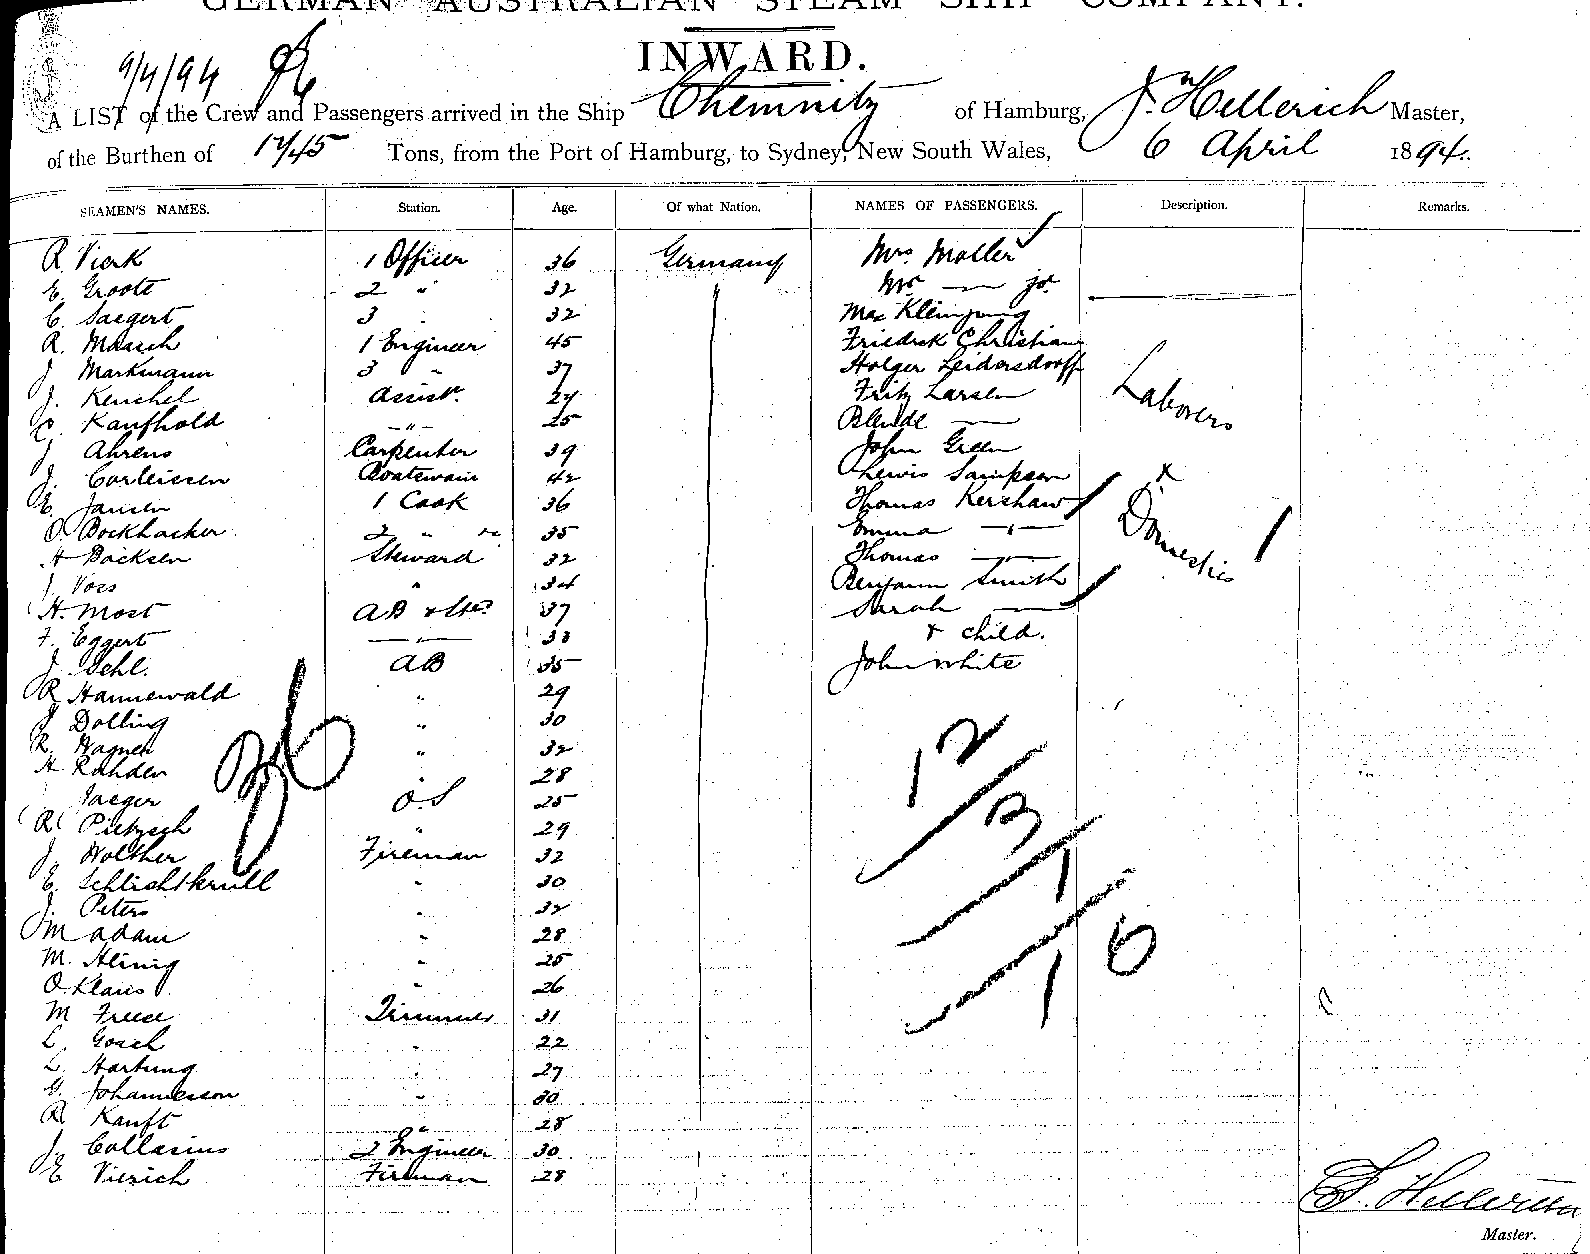 GERMAN AUSTRALIAN STEAM SHIP COMPANY.
INWARD.
9/4/94
A LIST of the Crew and Passengers arrived in the Ship Chemnitz of Hamburg, Hellerich Master,
of the Burthen of 1745 Tons, from the Port of Hamburg, to Sydney, New South Wales, 6 April 1894.
SEAMEN'S NAMES. Station. Age. Of what Nation. NAMES OF PASSENGERS. Description. Remarks.
R. Vierk 1 Officer 36 Germany Mrs. Moller
E. Groote 2 " 32 Mr — jr.
C. Saegert 3 " 32 Max
R. Maasch 1 Engineer 45 Friedrck Christian
J. Markmann 3 " 37 Holger Leidersdorff
J. Kenchel Assist. 24 Fritz Larsen Laborers
Kaufhold —"— 25 —
J. Ahrens Carpenter 39 John Green
J. Corleissen Boatswain 42 Lewis Sampson
E. Jansen 1 Cook 36 Thomas Kershaw
O. Bockhacker 2 " 35 Emma — " — Domestics
H Backsen Steward 32 Thomas —
J. Voss " 34 Benjamin Smith
H. Most AB 37 Sarah —
F. Eggert — " — 33 & child.
J. Sehl. AB 35 John White
R Hannewald " 29
J Dolling " 30
R. Wagner " 32
H Rahden " 28
Jaeger O.S 25
R Pietzsch " 29
J. Wolther Fireman 32
E. Schlichtkrull " 30
J. Peters " 32
M Adam " 28
M. Hennig " 25
O. Klaus " 26
M Freese Trimmer 31
L. Gosch " 22
L. Hartung " 27
G. Johannesson " 30
R Kauft " 28
J. Collasius 2 Engineer 30
E Vierich Fireman 28
36
12
3
1
1
6
Hellerich
Master.